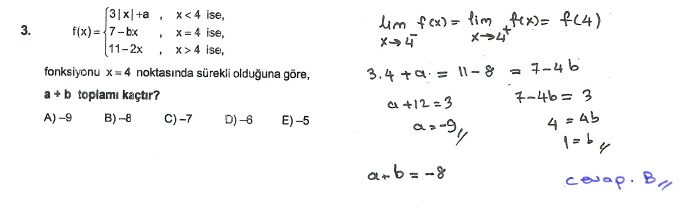 3. f(x)= { 3|x|+a , x < 4 ise,
7 – bx , x = 4 ise,
11 – 2x , x > 4 ise,
fonksiyonu x = 4 noktasında sürekli olduğuna göre,
a + b toplamı kaçtır?
A) –9 B) –8 C) –7 D) –6 E) –5
lim f(x) = lim f(x) = f(4)
x→4⁻ x→4⁺
3.4 + a = 11 – 8 = 7 – 4b
a + 12 = 3 7 – 4b = 3
a = –9 4 = 4b
1 = b
a + b = –8
cevap. B